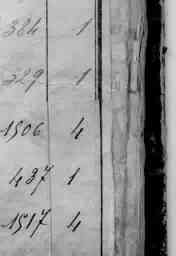 384 1
329 1
1506 4
437 1
1517 4